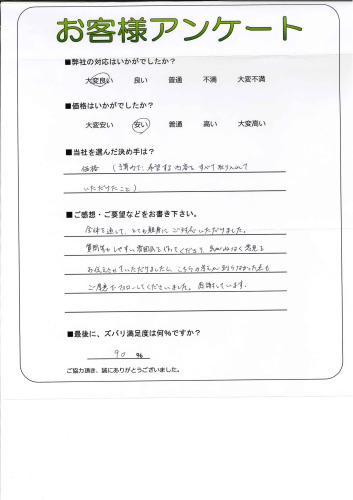 お客様アンケート
■弊社の対応はいかがでしたか？
大変良い 良い 普通 不満 大変不満
■価格はいかがでしたか？
大変安い 安い 普通 高い 大変高い
■当社を選んだ決め手は？
価格 (予算内で、希望する内容をすべて取り入れて
いただけたこと)
■ご感想・ご要望などをお書き下さい。
全体を通して、とても親身にご対応いただけました。
質問等もしやすい雰囲気を作ってくださり、気がねなく意見を
お伝えさせていただけましたし、こちらの考えが到らなかった点も
ご提案でフォローしてくださいました。感謝しています。
■最後に、ズバリ満足度は何％ですか？
90 %
ご協力頂き、誠にありがとうございました。